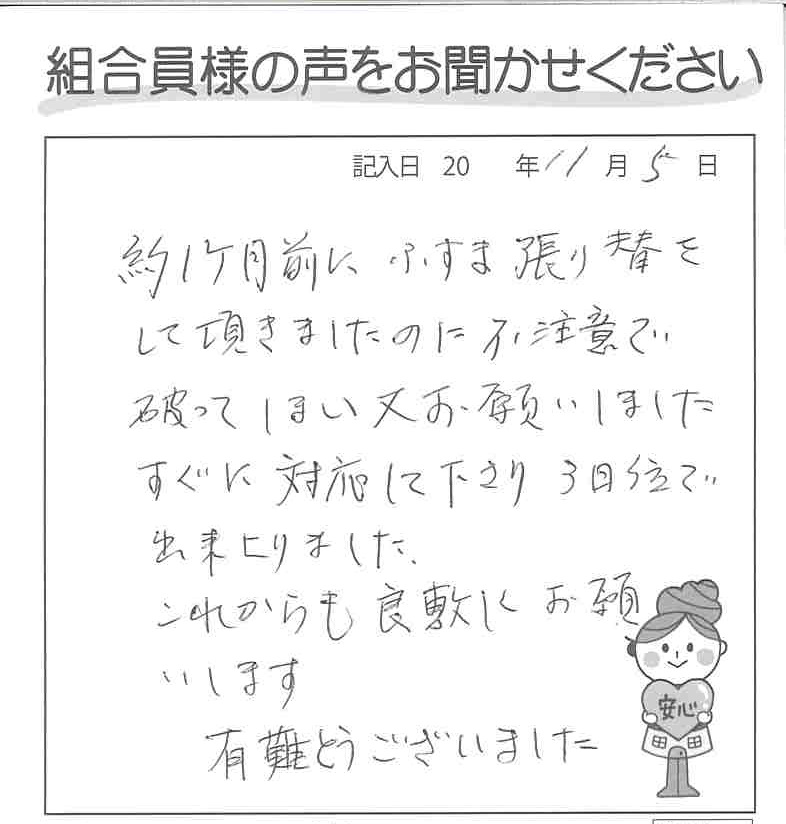 組合員様の声をお聞かせください
記入日 20 年 11 月 5 日
約1ケ月前に、ふすま張り替を
して頂きましたのに不注意で
破ってしまい又お願いしました
すぐに対応して下さり3日位で
出来上りました、
これからも良敷くお願
いします
有難どうございました
安心